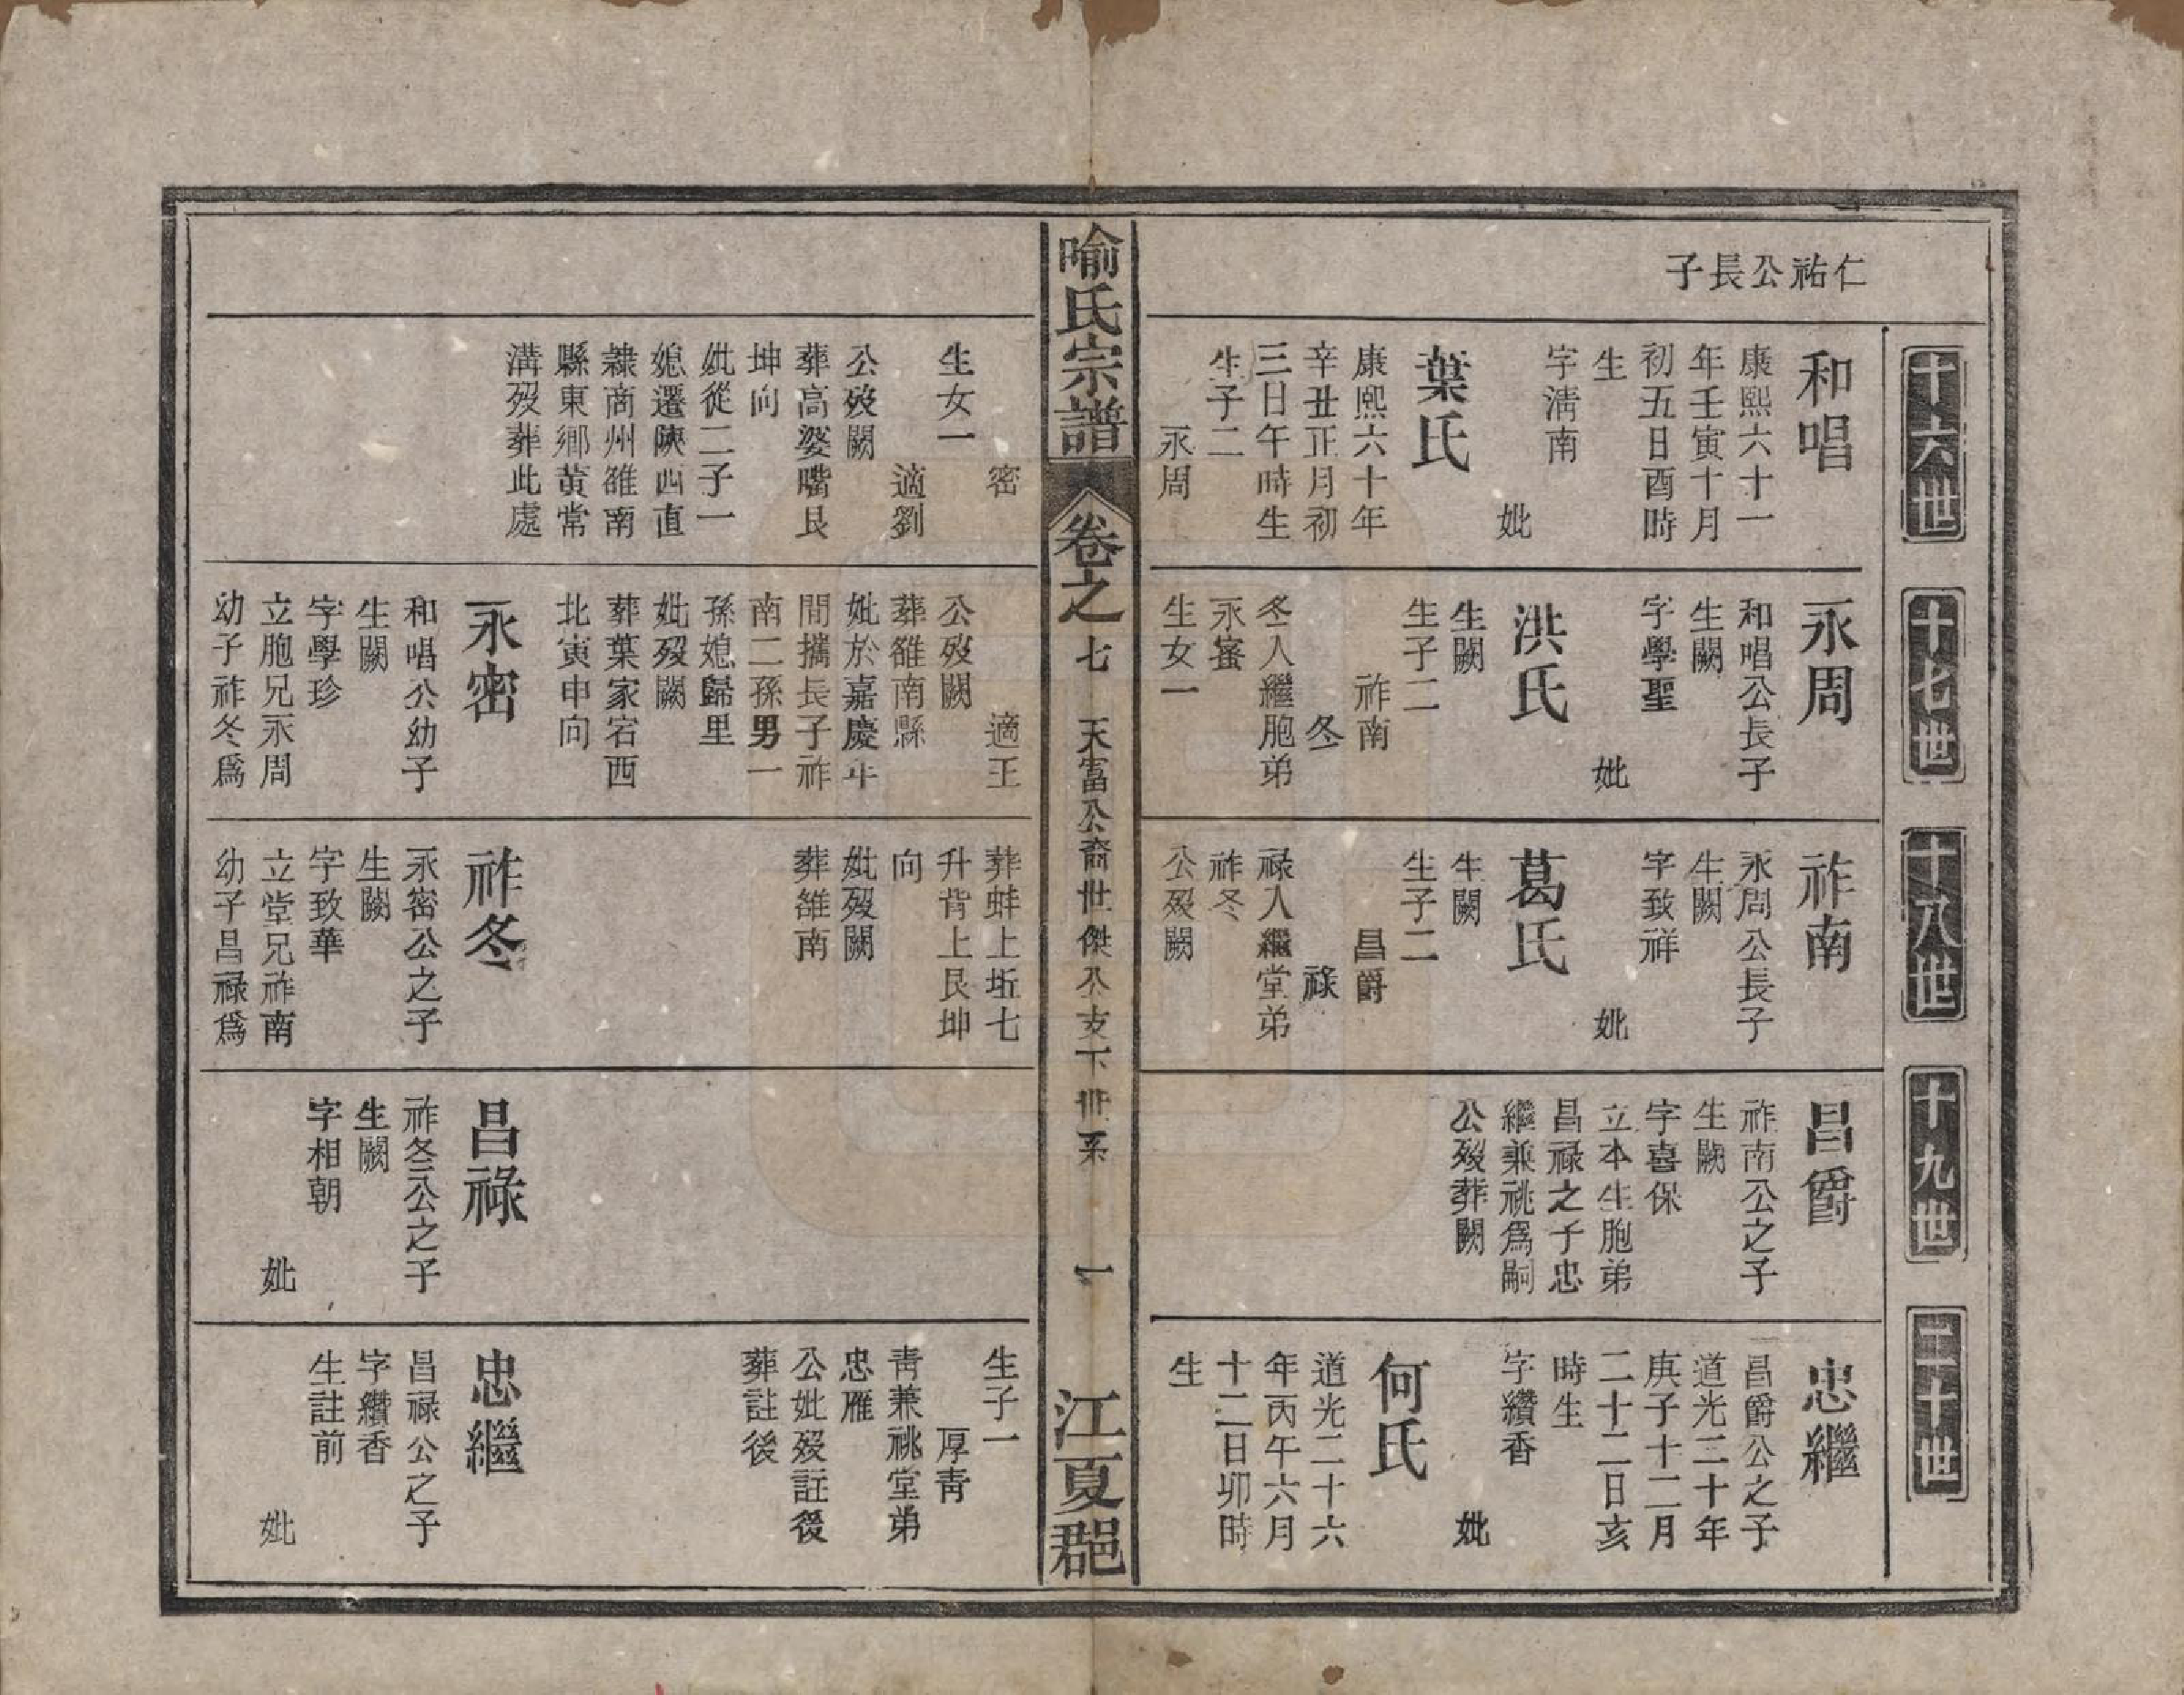 仁祐公長子
十六世
和唱
康熙六十一
年壬寅十月
初五日酉時
生
字淸南
妣
葉氏
康熙六十年
辛丑正月初
三日午時生
生子二
永周
密
生女一
適劉
公歿闕
葬高婆嘴艮
坤向
妣從二子一
媳遷陝西直
隸商州雒南
縣東鄉黃常
溝歿葬此處
十七世
永周
和唱公長子
生闕
字學聖
妣
洪氏
生闕
生子二
祚南
冬
冬入繼胞弟
永蜜
生女一
適王
公歿闕
葬雒南縣
妣於嘉慶年
間攜長子祚
南二孫男一
孫媳歸里
妣歿闕
葬葉家宕西
北寅申向
永密
和唱公幼子
生闕
字學珍
立胞兄永周
幼子祚冬爲
十八世
祚南
永周公長子
生闕
字致祥
妣
葛氏
生闕
生子二
昌爵
祿
祿入繼堂弟
祚冬
公歿闕
葬蚌上坵七
升背上艮坤
向
妣歿闕
葬雒南
祚冬
永密公之子
生闕
字致華
立堂兄祚南
幼子昌祿爲
十九世
昌爵
祚南公之子
生闕
字喜保
立本生胞弟
昌祿之子忠
繼兼祧爲嗣
公歿葬闕
昌祿
祚冬公之子
生闕
字相朝
妣
二十世
忠繼
昌爵公之子
道光二十年
庚子十二月
二十二日亥
時生
字纘香
妣
何氏
道光二十六
年丙午六月
十二日卯時
生
生子一
厚靑
靑兼祧堂弟
忠雁
公妣歿註後
葬註後
忠繼
昌祿公之子
字纘香
生註前
妣
喻氏宗譜
卷之七
天富公裔世傑公支下世系
一
江夏郡